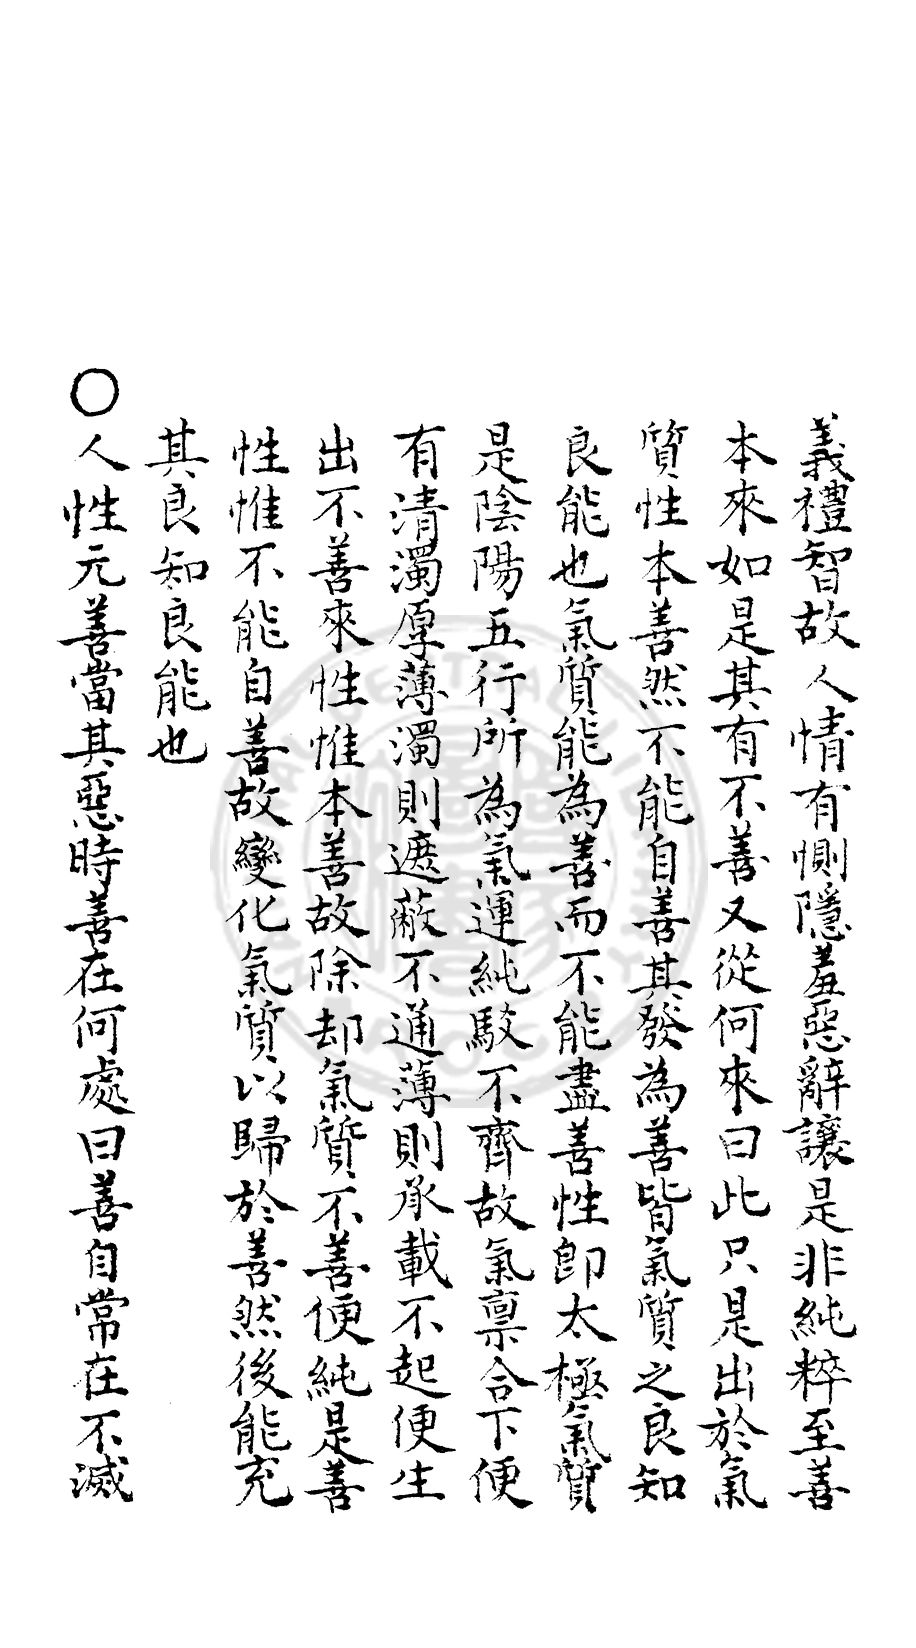 義禮智故人情有惻隱羞惡辭讓是非純粹至善
本來如是其有不善又從何來曰此只是出於氣
質性本善然不能自善其發為善皆氣質之良知
良能也氣質能為善而不能盡善性即太極氣質
是陰陽五行所為氣運純駁不齊故氣禀合下便
有清濁厚薄濁則遮蔽不通薄則承載不起便生
出不善來性惟本善故除却氣質不善便純是善
性惟不能自善故變化氣質以歸於善然後能充
其良知良能也
○人性元善當其惡時善在何處曰善自常在不滅